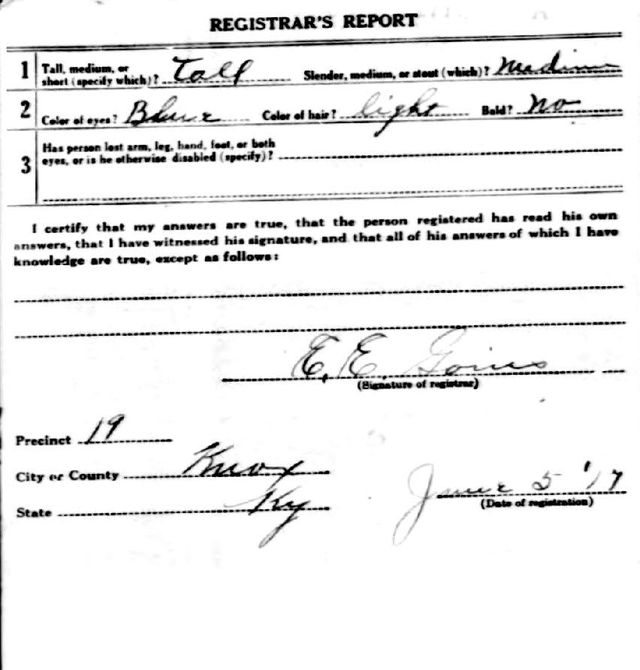 REGISTRAR'S REPORT
1 Tall, medium, or short (specify which)? Tall Slender, medium, or stout (which)? Medium
2 Color of eyes? Blue Color of hair? light Bald? No
3 Has person lost arm, leg, hand, foot, or both eyes, or is he otherwise disabled (specify)?
I certify that my answers are true, that the person registered has read his own
answers, that I have witnessed his signature, and that all of his answers of which I have
knowledge are true, except as follows:
E. E. Goins
(Signature of registrar)
Precinct 19
City or County Knox
State Ky
June 5 '17
(Date of registration)